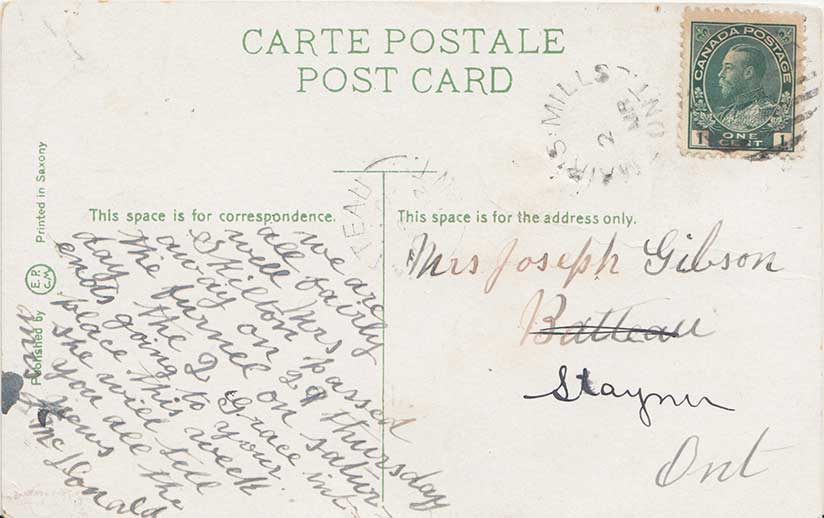 CARTE POSTALE
POST CARD
CANADA POSTAGE
1 ONE CENT 1
MAIR'S MILLS ONT
MR
2
TEAU
Printed in Saxony
Published by E.P. C.M.
This space is for correspondence.
This space is for the address only.
we are
all fairly
well Mrs
Skilton passed
away on 29 Thursday
the furnel on satur-
day the 2 Grace int-
ends going to your
place this week
she will tell
you all the
news
McDonald
Mrs Joseph Gibson
Batteau
Stayner
Ont